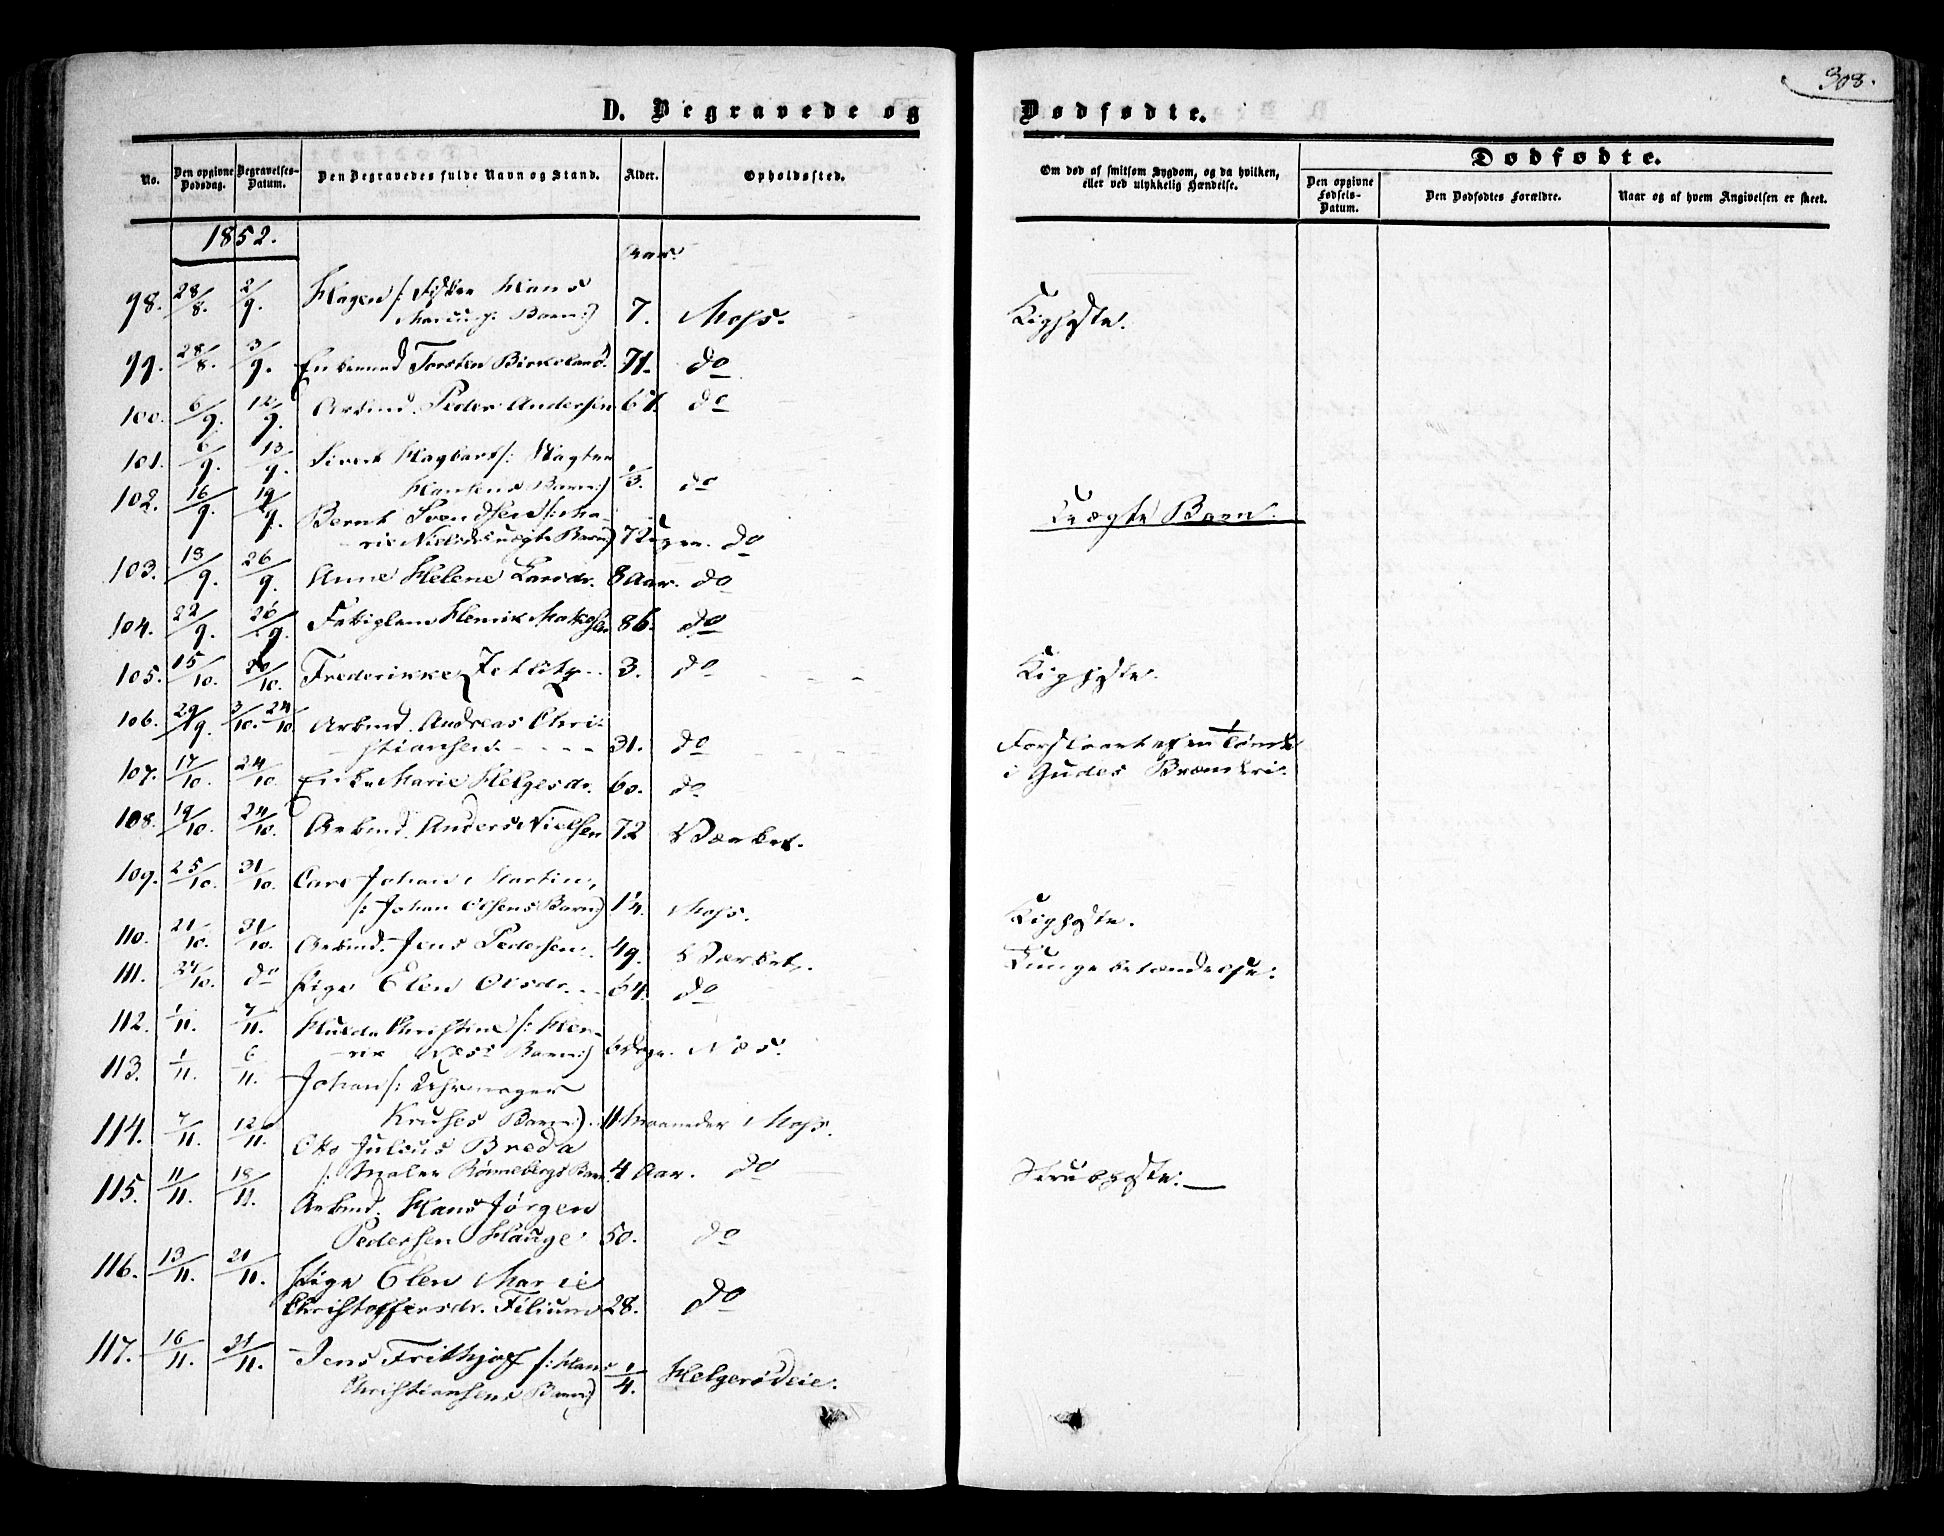 308.
D. Begravede og Dødfødte.
No. Den opgivne Dødsdag. Begravelses-Datum. Den Begravedes fulde Navn og Stand. Alder. Opholdssted. Om død af smitsom Sygdom, og da hvilken, eller ved ulykkelig Hændelse. Dødfødte.
Den opgivne Fødsels-Datum. Den Dødfødtes Forældre. Naar og af hvem Angivelsen er skeet.
1852.
Aar.
98. 28/8. 2/9. Hagen /: Fisker Hans
Barn:) 7. Moss. Kighoste.
99. 28/8. 3/9. Enkemand Torsten Birkeland. 71. do
100. 6/9. 12/9. Arbmd. Peder Andersen 67. do
101. 6/9. 13/9. Sivert Hagbart /: Vægter
Hansens Barn:) 1/3. do
102. 16/9. 19/9. Bernt Svendsen /: Ma-
rie Nielsd. uægte Barn:) 7 Uger. do Uægte Barn.
103. 19/9. 26/9. Anne Helene Larsdr. 8 Aar. do
104. 22/9. 26/9. Fattiglem Henrik 86. do
105. 15/10. 20/10. Frederikke Zetlitz. 3. do Kighoste.
106. 29/9. 3/10. 24/10. Arbmd. Andreas Chri-
stiansen. 31. do Forslaaet af en Tømme
i Gudes Brænderi.
107. 17/10. 24/10. Enke Marie Helgesdr. 60. do
108. 19/10. 24/10. Arbmd. Anders Nielsen 72 Værket.
109. 25/10. 31/10. Carl Johan Martin,
/: Johan Olsens Barn:) 1/4. Moss. Kighoste.
110. 21/10. 31/10. Arbmd. Jens Pedersen. 49. Værket. Lungebetændelse.
111. 24/10. do Pige Elen Olsdr. 64. do
112. 1/11. 7/11. Hulda Christine /: Hen-
rik Næss Barn:) 6 Dage. Næs.
113. 1/11. 6/11. Johan /: Uhrmager
Kruses Barn:). 11 Maaneder Moss.
114. 7/11. 12/11. Otto Julius Breda
/: Maler Rønnebergs Barn. 4 Aar. do Strubhoste.
115. 11/11. 19/11. Arbmd. Hans Jørgen
Pedersen Hauge. 50. do
116. 13/11. 21/11. Pige Elen Marie
Christoffersdr. 28. do
117. 16/11. 21/11. Jens Frithjof /: Hans
Christiansens Barn:) 1/4. Helgerødeie.